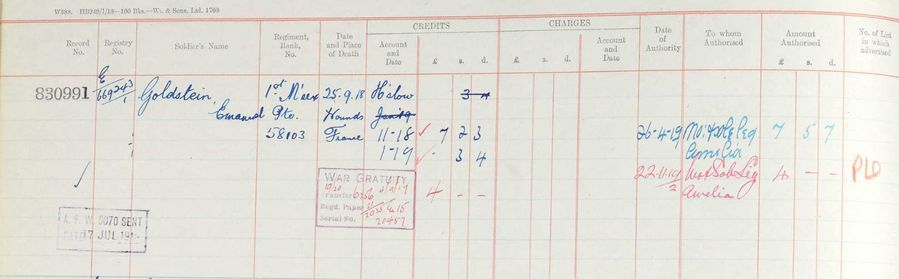 W588. HB249/1/18—100 Bks.—Wt. & Sons, Ltd. 1760
CREDITS CHARGES
Record No. Registry No. Soldier's Name Regiment, Rank, No. Date and Place of Death Account and Date £ s. d. £ s. d. Account and Date Date of Authority To whom Authorised Amount Authorised £ s. d. No. of List in which advertised
830991 E 669243/1 Goldstein, 1st M'sex 25-9-18 H'slow 3 4
Emanuel Pte. Wounds Jan 19
58103 France 11-18 7 2 3 26-4-19 Mo: & Sole Leg 7 5 7
1-19 - 3 4 Amelia
WAR GRATUITY 22.11.19 Mo & Sole Leg 4 - - PLO
4 - - 2 Amelia
Regd. Paper
Serial No. 20457
A. F. W. 5070 SENT
17 JUL 19